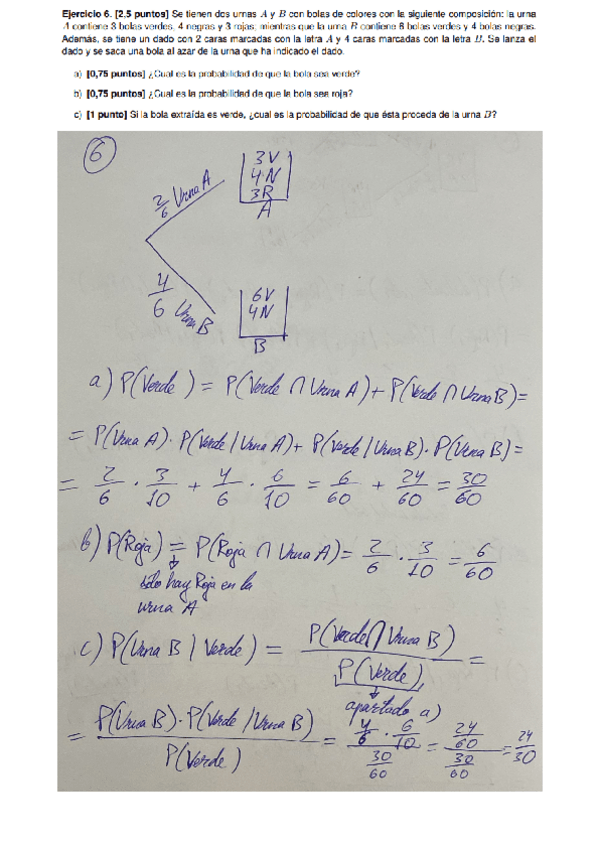 Ejercicio 6. [2,5 puntos] Se tienen dos urnas A y B con bolas de colores con la siguiente composición: la urna
A contiene 3 bolas verdes, 4 negras y 3 rojas; mientras que la urna B contiene 6 bolas verdes y 4 bolas negras.
Además, se tiene un dado con 2 caras marcadas con la letra A y 4 caras marcadas con la letra B. Se lanza el
dado y se saca una bola al azar de la urna que ha indicado el dado.
a) [0,75 puntos] ¿Cual es la probabilidad de que la bola sea verde?
b) [0,75 puntos] ¿Cual es la probabilidad de que la bola sea roja?
c) [1 punto] Si la bola extraída es verde, ¿cual es la probabilidad de que ésta proceda de la urna B?
6
2/6 Urna A
3V
4N
3R
A
4/6 Urna B
6V
4N
B
a) P(Verde) = P(Verde ∩ Urna A) + P(Verde ∩ Urna B) =
= P(Urna A) · P(Verde | Urna A) + P(Verde | Urna B) · P(Urna B) =
= 2/6 · 3/10 + 4/6 · 6/10 = 6/60 + 24/60 = 30/60
b) P(Roja) = P(Roja ∩ Urna A) = 2/6 · 3/10 = 6/60
sólo hay Roja en la
urna A
c) P(Urna B | Verde) = P(Verde ∩ Urna B) / P(Verde) =
apartado a)
= P(Urna B) · P(Verde / Urna B) / P(Verde) = 4/6 · 6/10 / 30/60 = 24/60 / 30/60 = 24/30